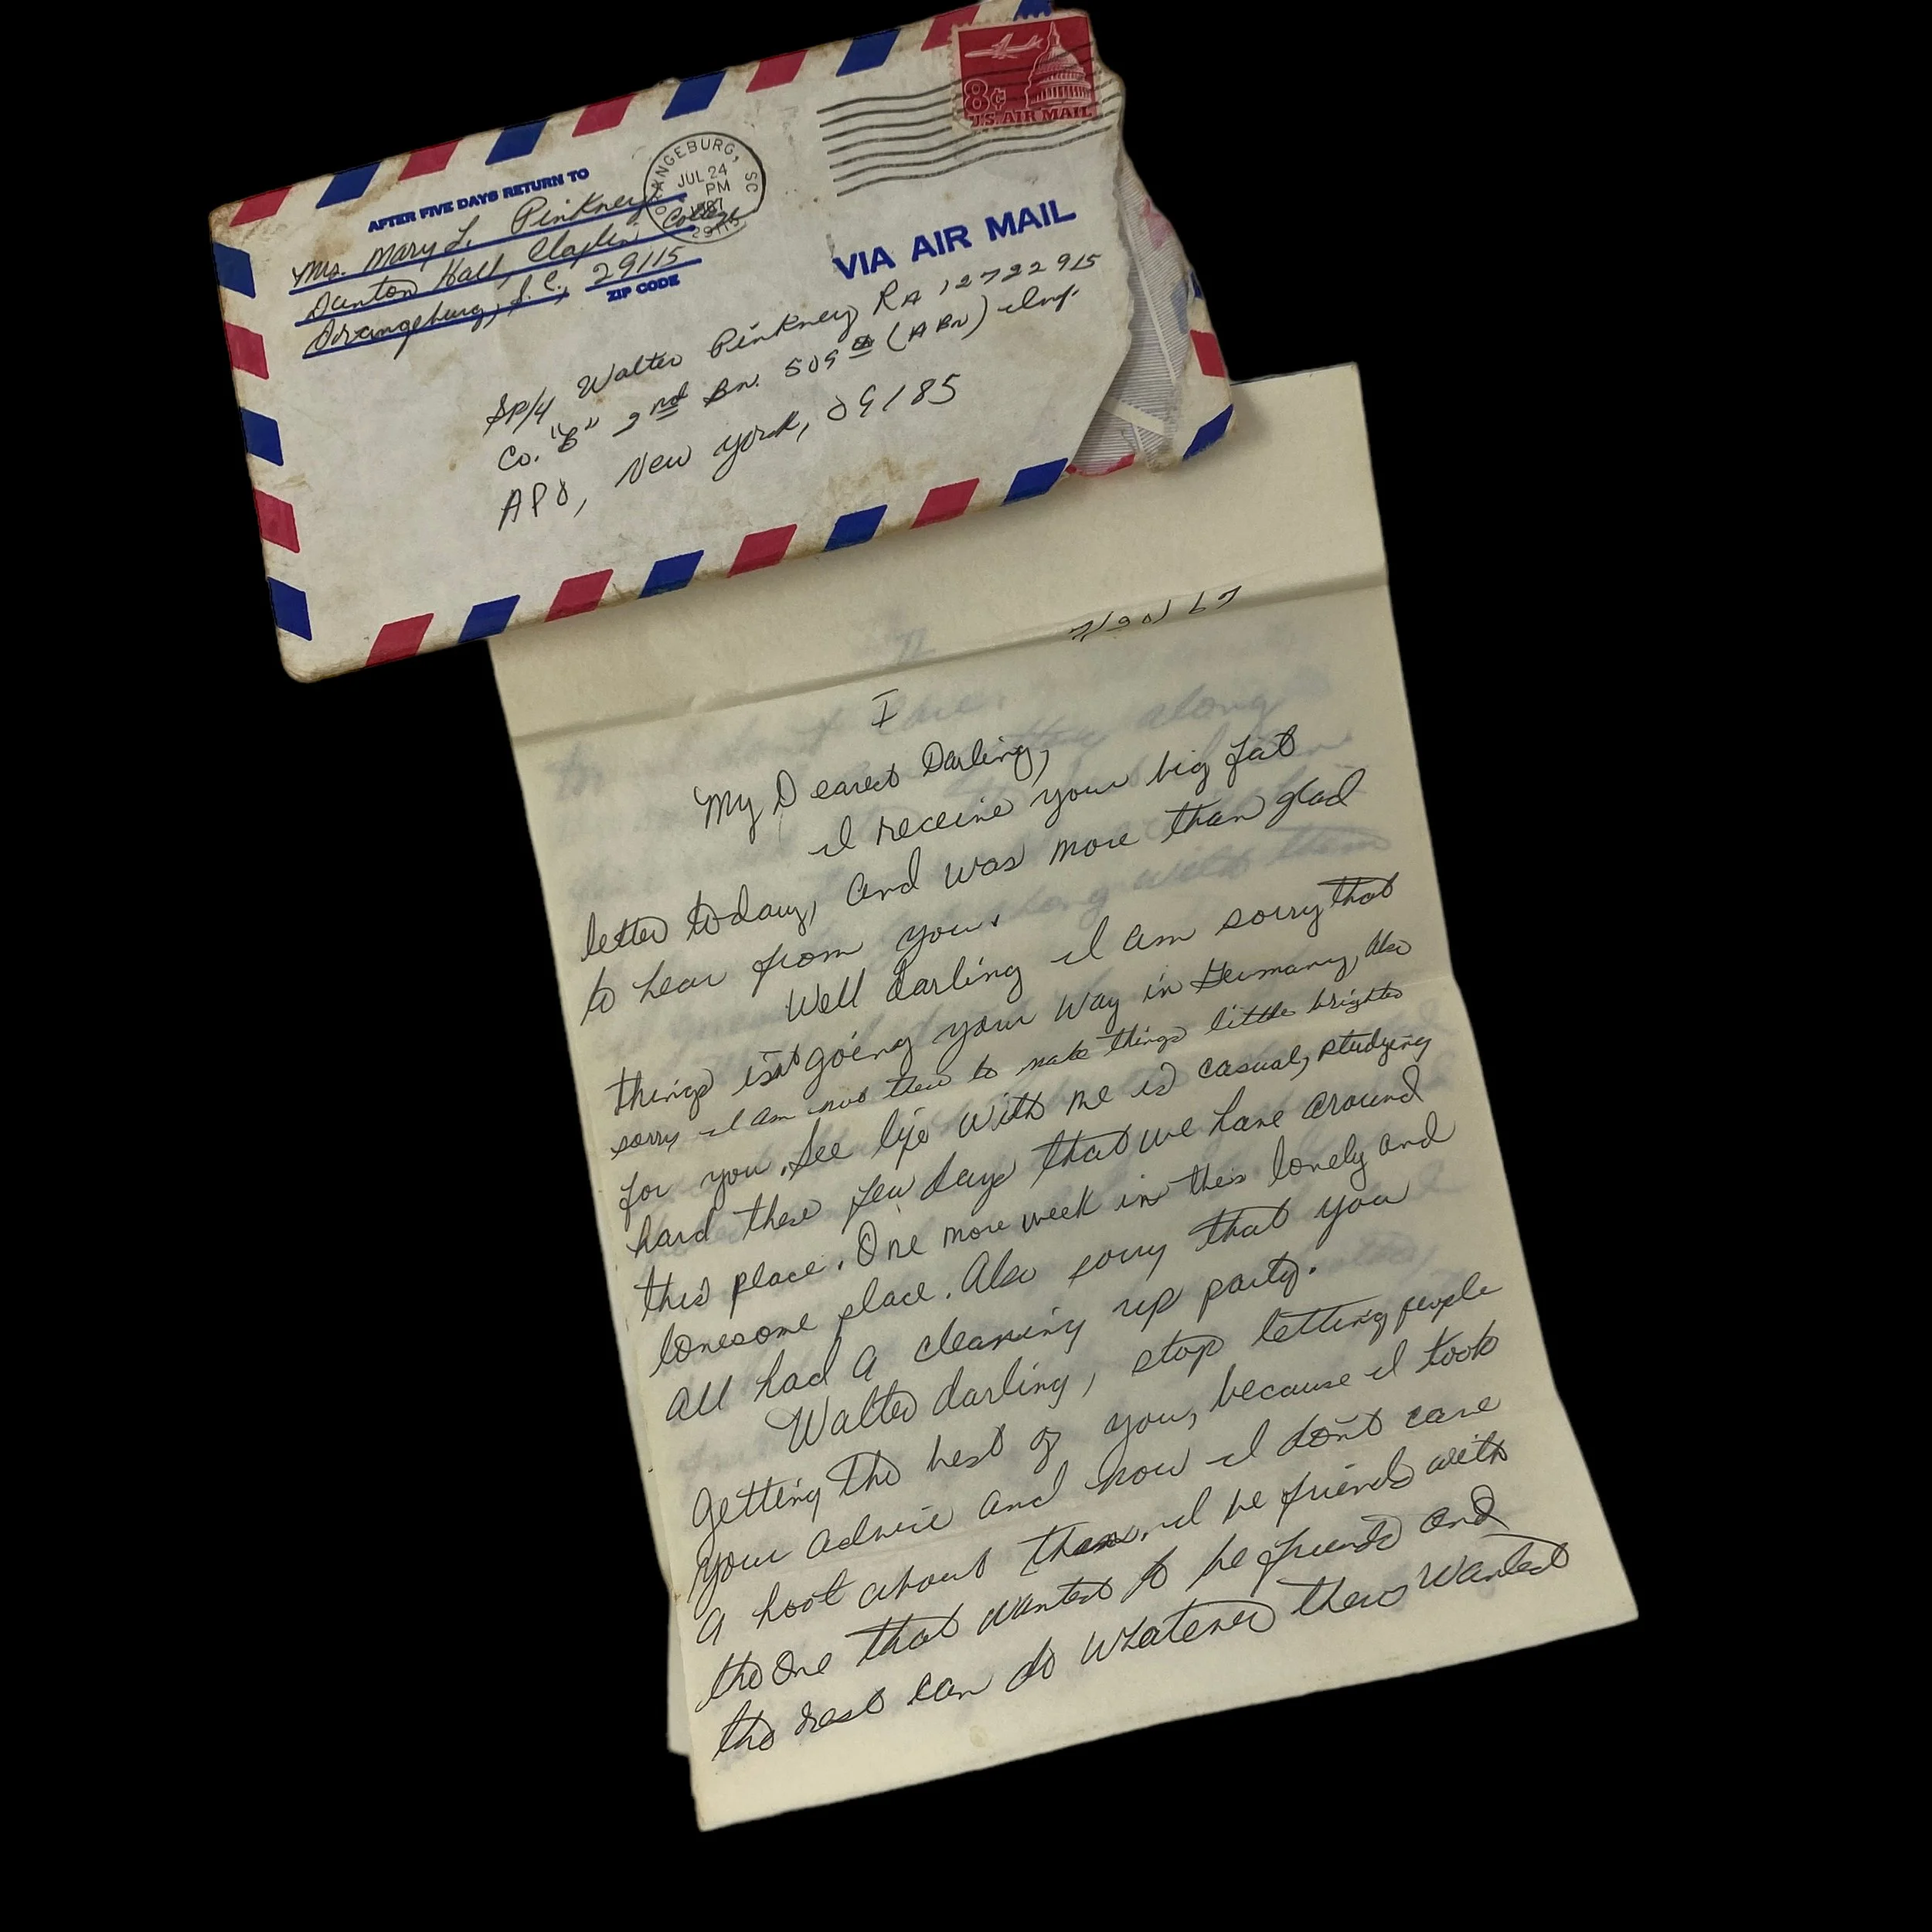 8¢
U.S. AIR MAIL
ORANGEBURG, SC
JUL 24
PM
29115
AFTER FIVE DAYS RETURN TO
Mrs. Mary L. Pinkney
Dunton Hall, Claflin College
Orangeburg, S.C., 29115
ZIP CODE
VIA AIR MAIL
SP/4 Walter Pinkney RA 12722915
Co. "B" 2nd Bn. 509th (ABN) Inf.
APO, New York, 09185
7/20/67
I
My Dearest Darling,
I receive your big fat
letter today, and was more than glad
to hear from you.
Well darling I am sorry that
things isn't going your way in Germany, Also
sorry I am not there to make things little brighter
for you. See life with me is casual, studying
hard these few days that we have around
this place. One more week in this lonely and
lonesome place. Also sorry that you
all had a cleaning up party.
Walter darling, stop letting people
getting the best of you, because I took
your advice and now I don't care
a hoot about them. I'd be friends with
the one that wanted to be friends and
the rest can do whatever they wanted